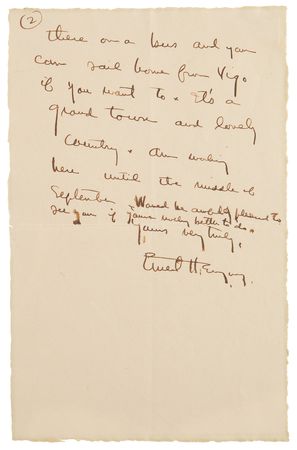 (2)
there on a bus and you
can sail home from Vigo
if you want to. It's a
grand town and lovely
country. Am working
here until the middle of
September. Would be awfully pleased to
see you if you've nothing better to do.
Yours very truly,
Ernest Hemingway.